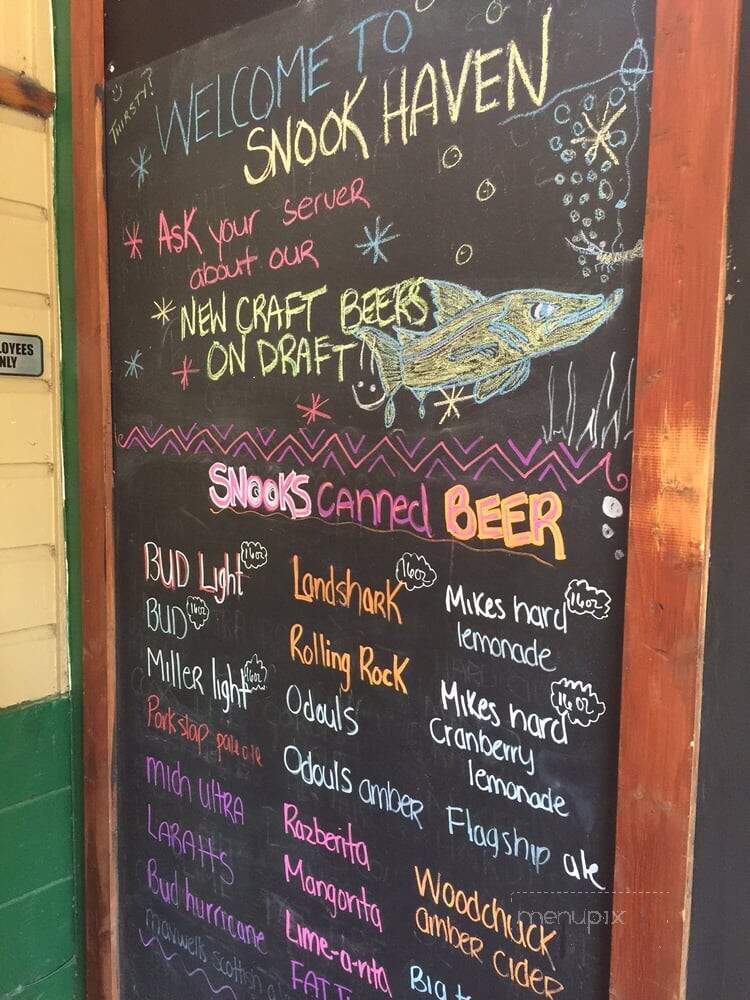 THIRSTY?
WELCOME TO
SNOOK HAVEN
ASK your server
about our
NEW CRAFT BEERS
ON DRAFT
LOYEES
NLY
SNOOKS canned BEER
BUD Light 16oz
BUD 16oz
MILLER light 16oz
Porkslap pale ale
mich ULTRA
LABATTS
Bud hurricane
maxwells scottish
Landshark 16oz
Rolling Rock
Odouls
Odouls amber
Razberita
Mangorita
Lime-a-rita
FAT T
Mikes hard 16oz
lemonade
Mikes hard 16oz
Cranberry
lemonade
Flagship ale
Woodchuck
amber cider
Big
menupix